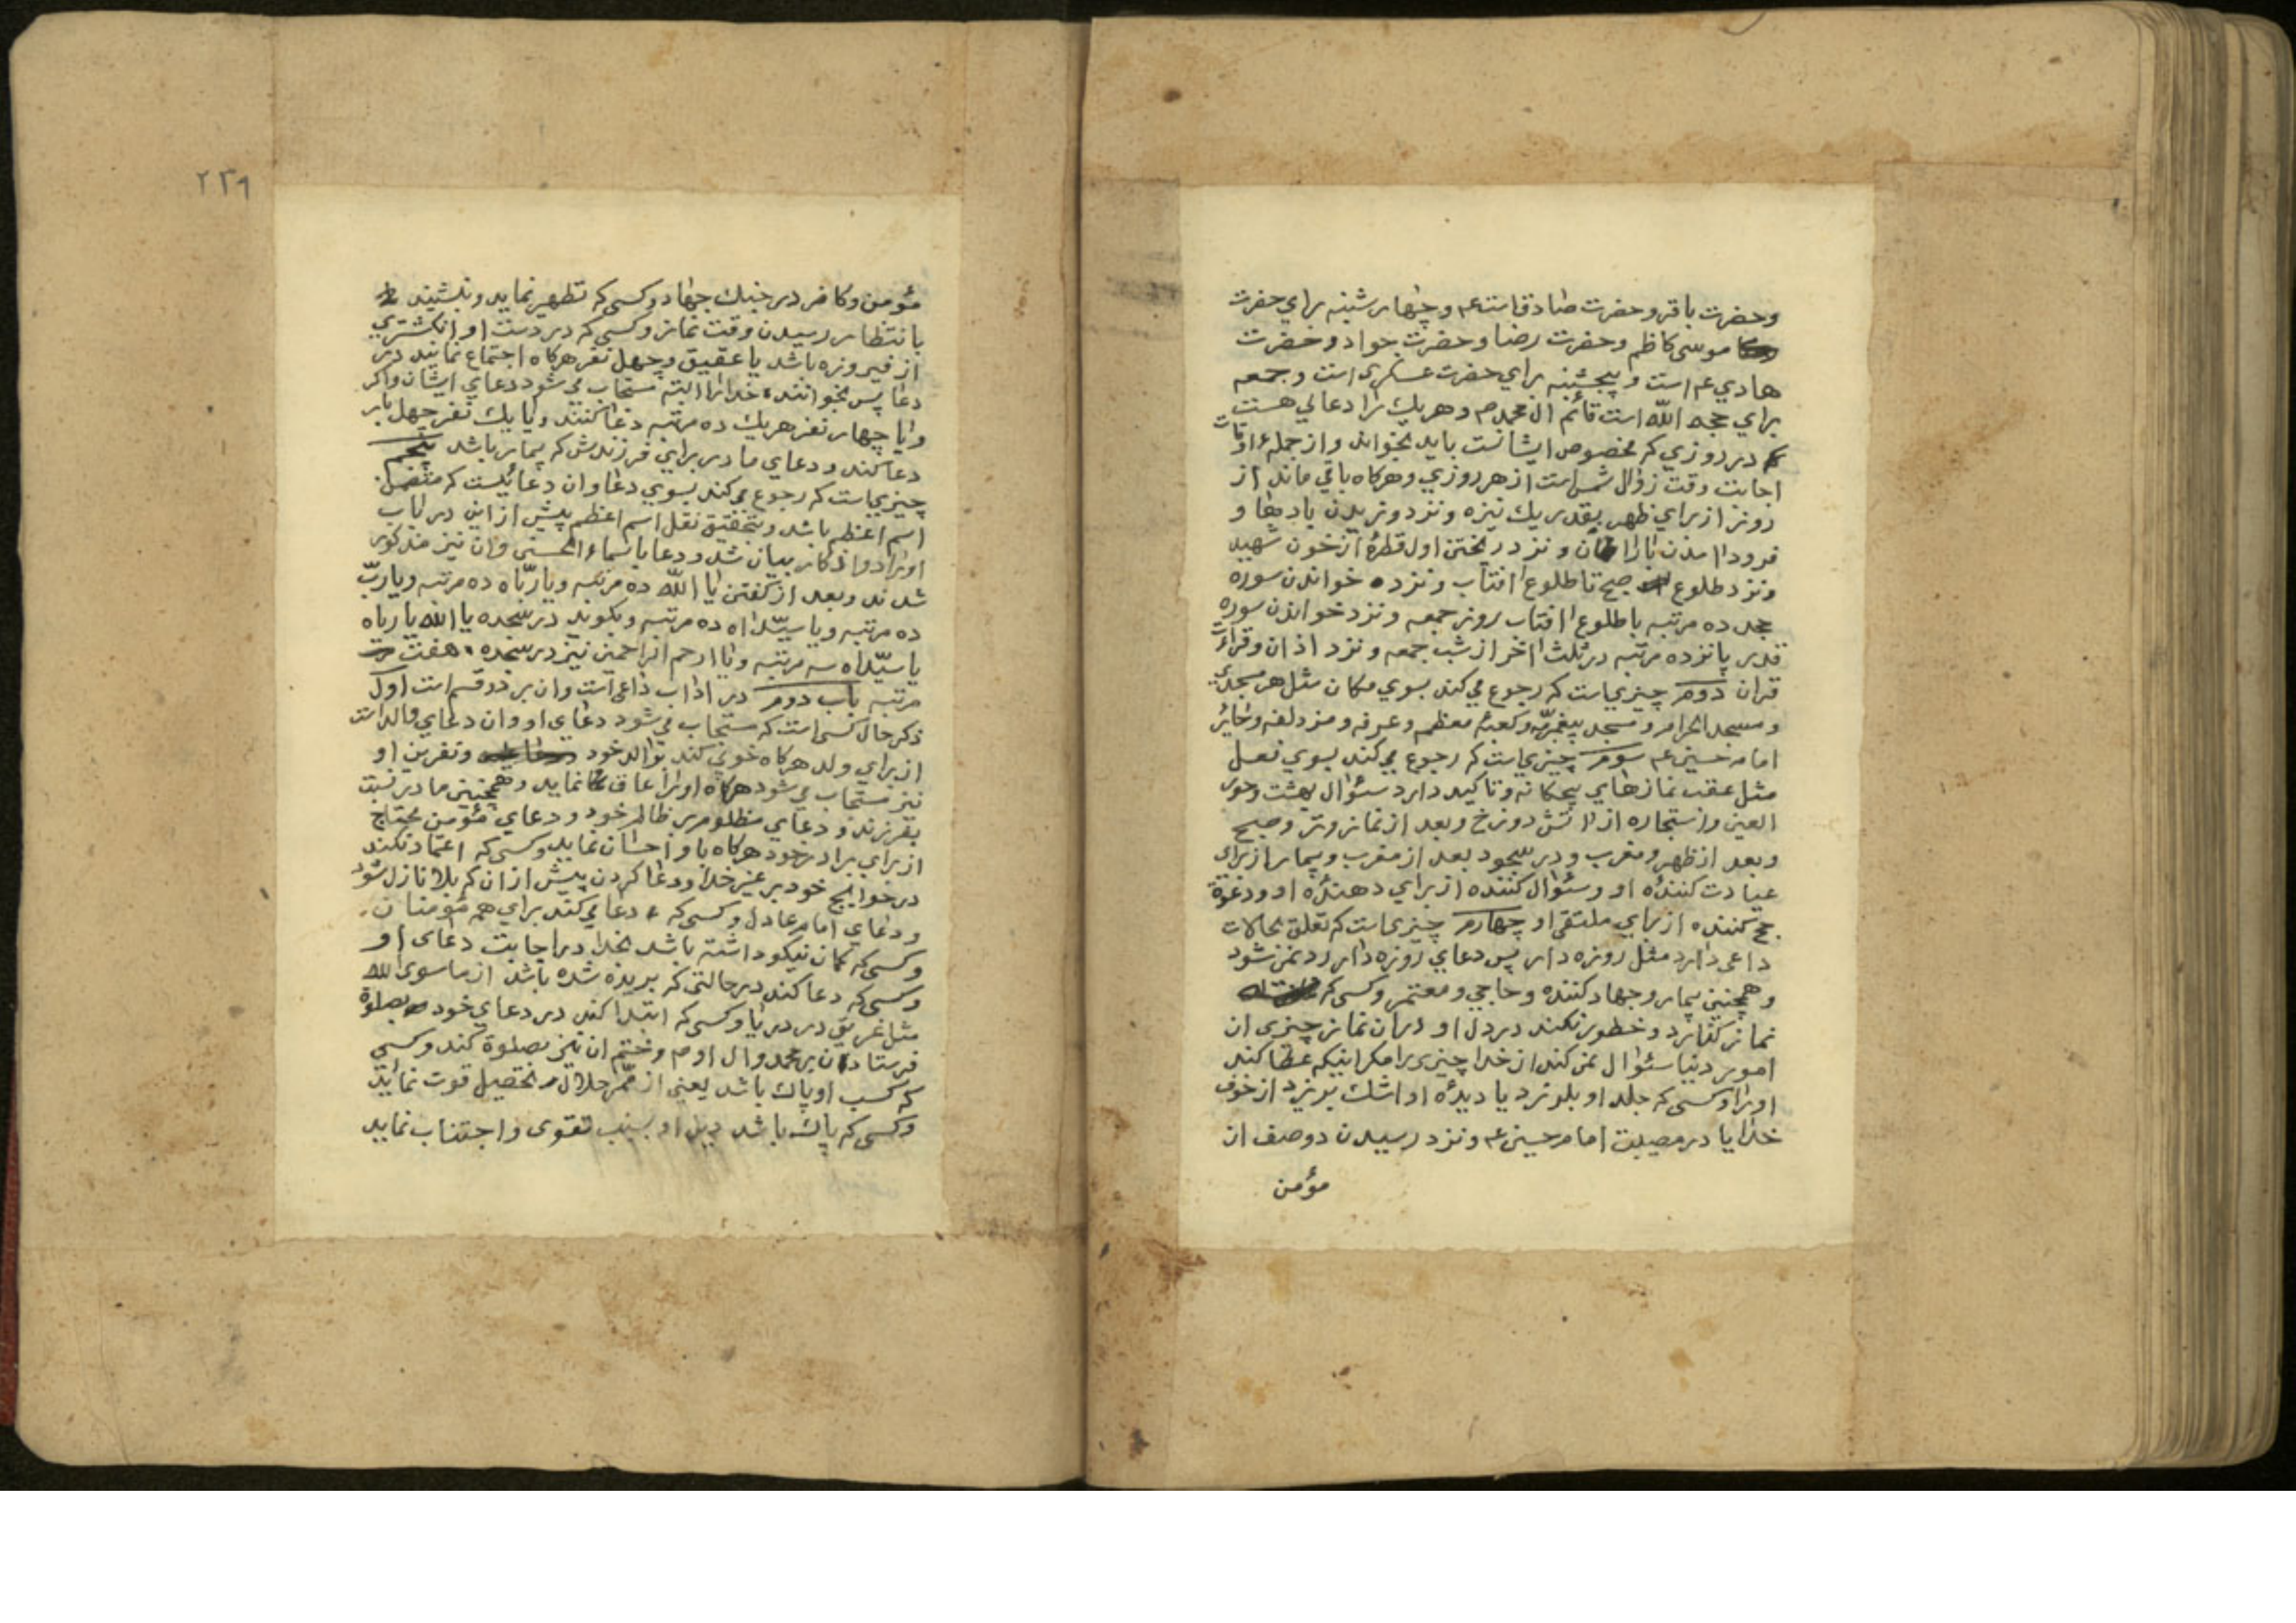 وحضرت باقر و حضرت صادق است عم و چهار شنبه براي حضرت
موسی کاظم و حضرت رضا و حضرت جواد و حضرت
هادي عم است و پنجشنبه براي حضرت عسکری است و جمعه
براي حجه اللّه است قائم ال محمد م و هريك را دعائي هست
که در روزي که مخصوص ایشانست باید بخواند و از جملهٔ اوقات
اجابت وقت زوال شمس است از هر روزي و هرکاه باقي ماند از
روز از براي ظهر بقدر یك نیزه و نزد وزیدن بادها و
فرود امدن باران و نزد ریختن اول قطرهٔ از خون شهید
و نزد طلوع صبح تا طلوع افتاب و نزد خواندن سوره
جحد ده مرتبه با طلوع افتاب روز جمعه و نزد خواندن سوره
قدر پانزده مرتبه در ثلث اخر از شب جمعه و نزد اذان و قرائت
قران دوم چیزیست که رجوع می کند بسوي مکان مثل هر مسجدي
و مسجد الحرام و مسجد پیغمبر و کعبهٔ معظم و عرفه و مزدلفه و حائر
امام حسین عم سوم چیزیست که رجوع می کند بسوي فعل
مثل عقب نمازهاي پنجکانه و تاکید دارد سئوال بهشت و حور
العین و استجاره از اتش دوزخ و بعد از نماز وتر و صبح
و بعد از ظهر و مغرب و در سجود بعد از مغرب و بیمار از براي
عیادت کنندهٔ او و سئوال کننده از براي دهندهٔ او و دعوة
حج کننده از براي ملتقی او چهارم چیزیست که تعلق بحالات
داعی دارد مثل روزه دار پس دعاي روزه دار رد نمی شود
و همچنین بیمار و جهاد کننده و حاجي و معتمر و کسی که
نماز کذارد و خطور نکند در دل او در ان نماز چیزی از
امور دنیا سئوال نمی کند از خدا چیزی را مکر اینکه عطا کند
او را و کسی که جلد او بلرزد یا دیدهٔ او اشك بریزد از خوف
خدا یا در مصیبت امام حسین عم و نزد رسیدن دو صف از
مؤمن
٢٣٩
مؤمن و کافر در جنك جهاد و کسی که تطهیر نماید و بنشیند
بانتظار رسیدن وقت نماز و کسی که در دست او انکشتری
از فیروزه باشد یا عقیق و چهل نفر هرکاه اجتماع نمایند در
دعا پس بخوانند خدا را البته مستجاب می شود دعاي ایشان و اکر
و یا چهار نفر هریك ده مرتبه دعا کنند و یا یك نفر چهل بار
دعا کند و دعاي مادر براي فرزندش که بیمار باشد پنجم
چیزیست که رجوع می کند بسوي دعا و ان دعائیست که متضمن
اسم اعظم باشد و بتحقیق نقل اسم اعظم پیش از این در باب
اوراد و اذکار بیان شد و دعا باسماء الحسنی و ان نیز مذکور
شدند و بعد از کفتن یا اللّه ده مرتبه و یا ربّاه ده مرتبه و یا ربّ
ده مرتبه و یا سیّداه ده مرتبه و بکوید در سجده یا اللّه یا رباه
یا سیّداه سه مرتبه و یا ارحم الراحمین نیز در سجده هفت
مرتبه باب دوم در اداب داعی است و ان بر دو قسم است اول
ذکر حال کسی است که مستجاب می شود دعاي او و ان دعاي والد است
از براي ولد هرکاه خوبي کند بوالد خود و نفرین او
نیز مستجاب می شود هرکاه او را عاق نماید و همچنین مادر نسبت
بفرزند و دعاي مظلوم بر ظالم خود و دعاي مؤمن محتاج
از براي برادر خود هرکاه باو احسان نماید و کسی که اعتماد نکند
در حوایج خود بر غیر خدا و دعا کردن پیش از ان که بلا نازل شود
و دعاي امام عادل و کسی که دعا می کند براي همه مؤمنان
و کسی که کمان نیکو داشته باشد بخدا در اجابت دعاي او
و کسی که دعا کند در حالتی که بریده شده باشد از ما سوی اللّه
مثل غریق در دریا و کسی که ابتدا کند در دعاي خود بصلوة
فرستادن بر محمد و ال او م و ختم ان نیز بصلوة کند و کسی
که کسب او پاك باشد یعنی از ممّر حلال تحصیل قوت نماید
و کسی که پاك باشد دل او بسبب تقوی و اجتناب نماید